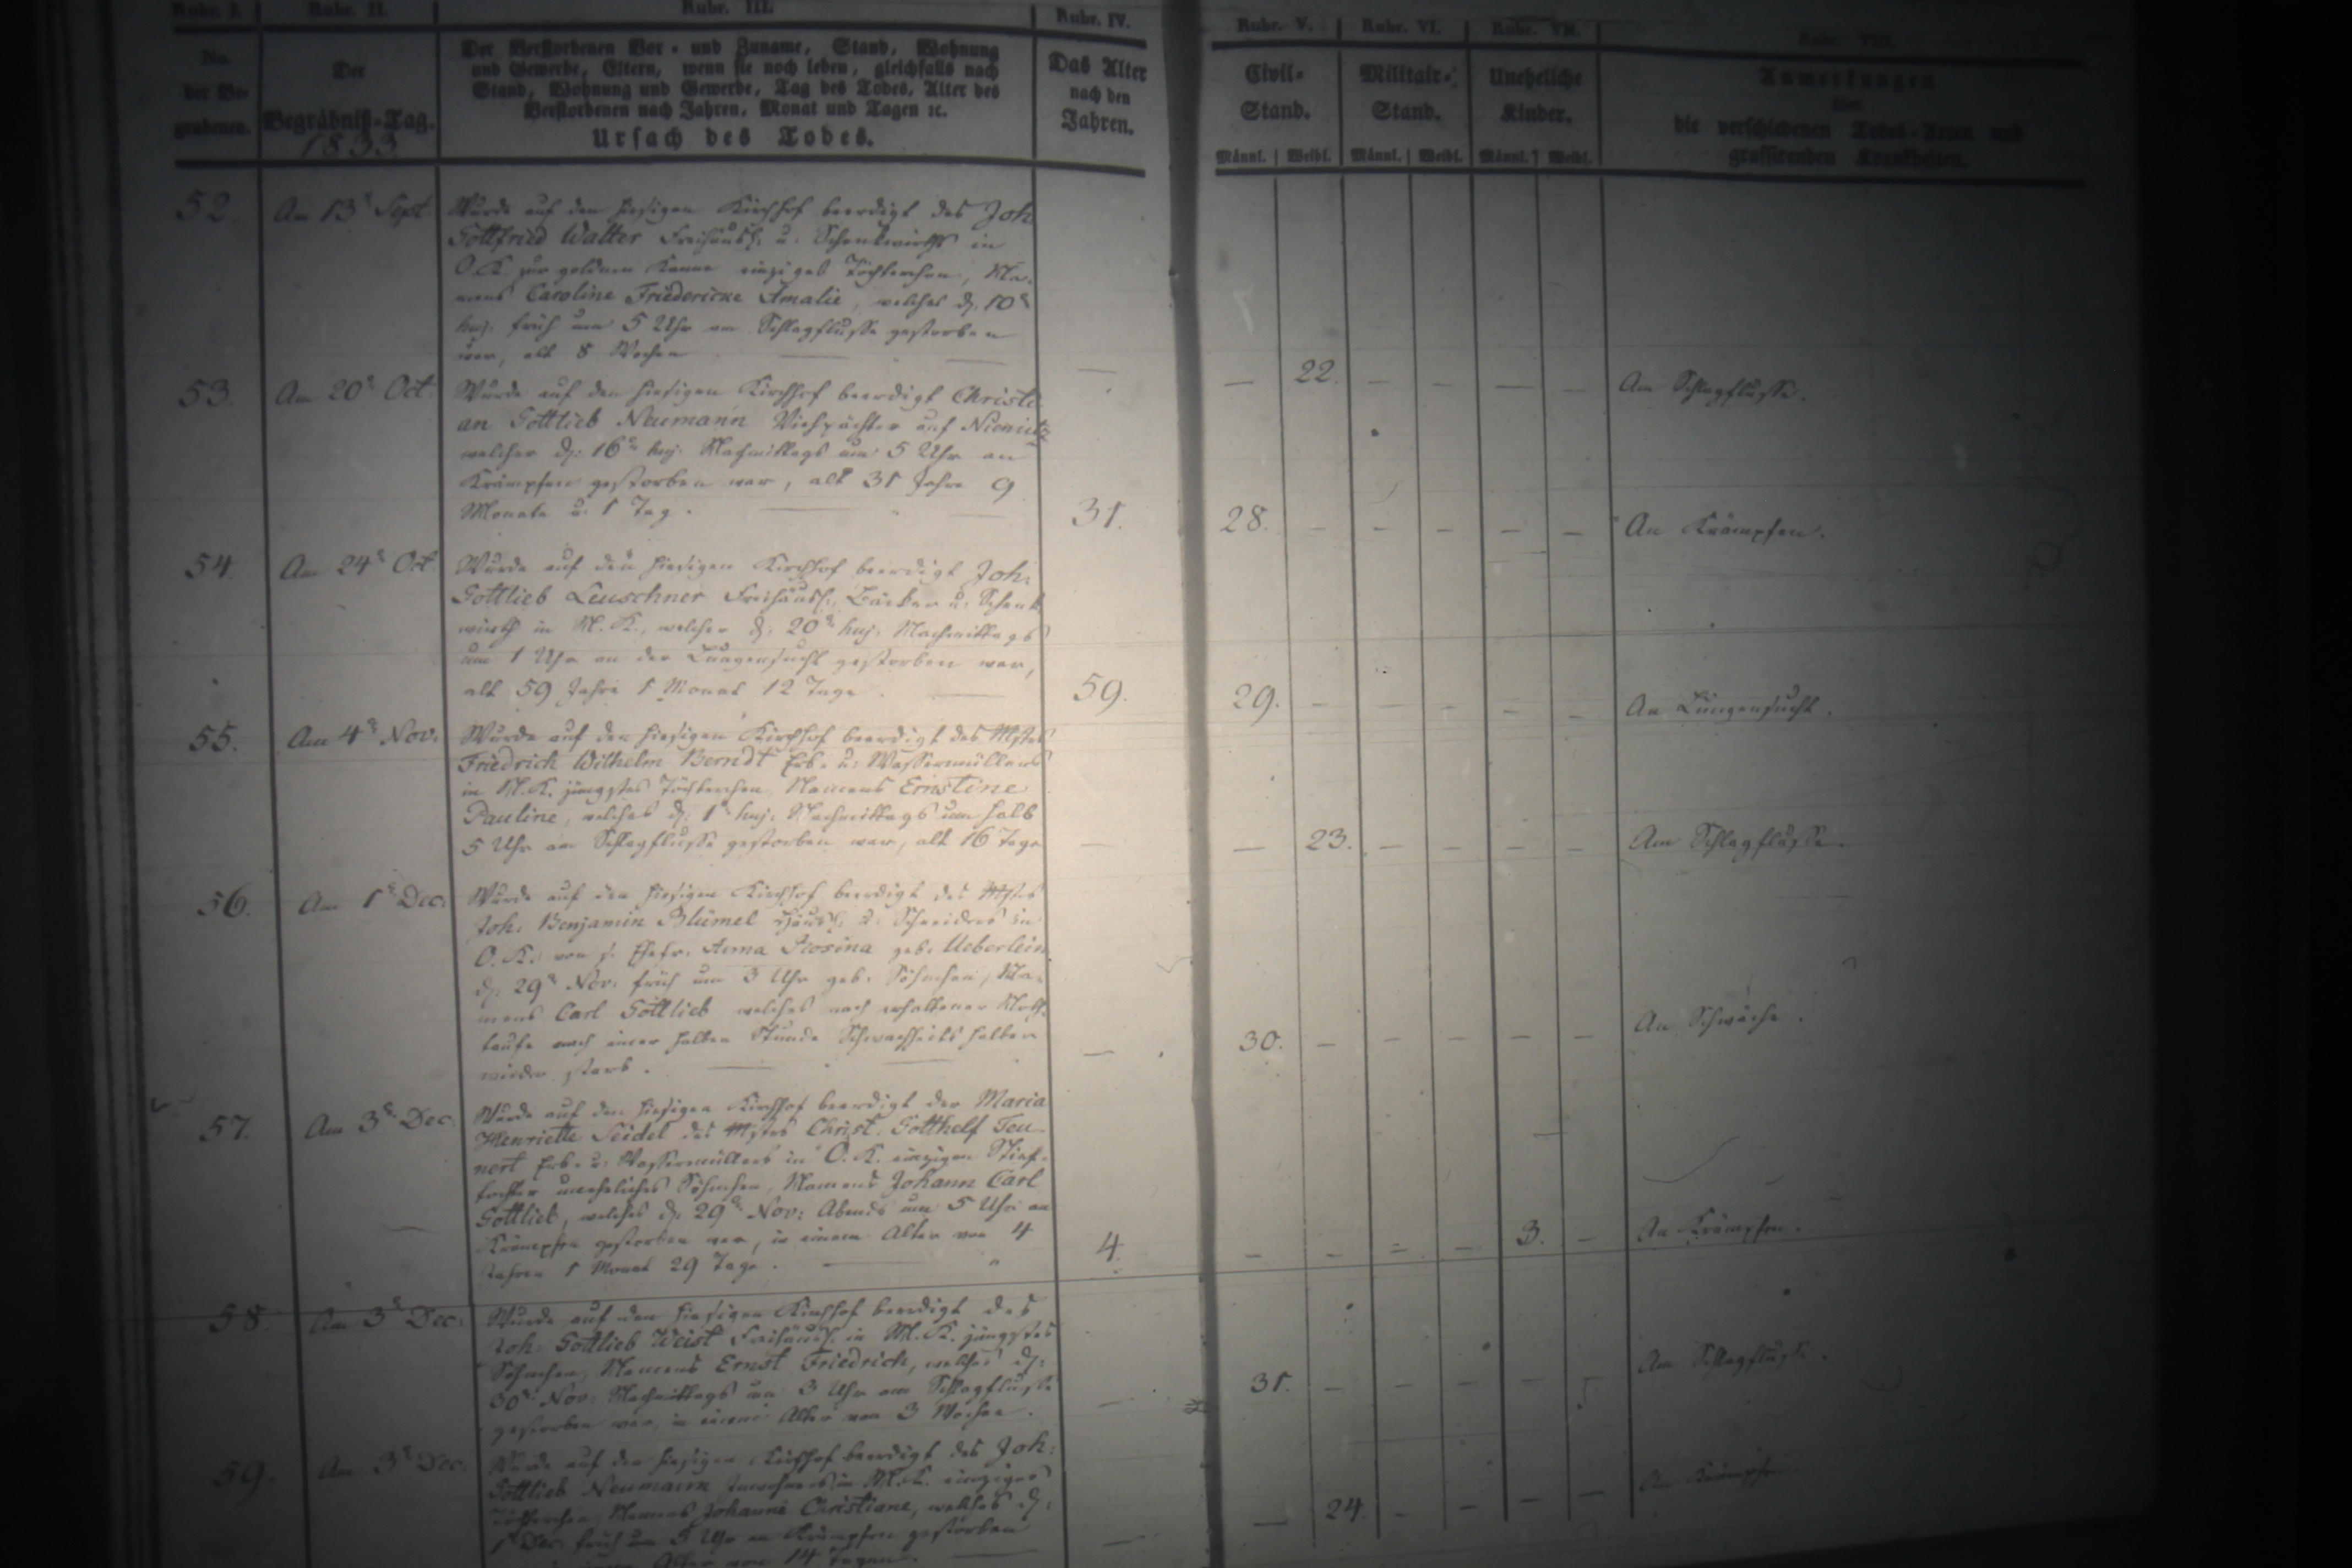 Rubr. I. Rubr. II. Rubr. III. Rubr. IV. Rubr. V. Rubr. VI. Rubr. VII. Rubr. VIII.
No. der Be-grabenen.
Der Begräbniß-Tag.
1833
Der Verstorbenen Vor- und Zuname, Stand, Wohnung
und Gewerbe, Eltern, wenn sie noch leben, gleichfalls nach
Stand, Wohnung und Gewerbe, Tag des Todes, Alter des
Verstorbenen nach Jahren, Monat und Tagen ꝛc.
Ursach des Todes.
Das Alter nach den Jahren.
Civil-Stand.
Militair-Stand.
Uneheliche Kinder.
Männl. Weibl. Männl. Weibl. Männl. Weibl.
Anmerkungen
über
die verschiedenen Todes-Arten und
grassirenden Krankheiten.
52. Am 13t Sept. Wurde auf den hiesigen Kirchhof beerdigt des Joh
Gottfried Walter Freihäusl. u. Schenkwirths in
O.K. zur goldnen Kanne einziges Töchterchen, Na-
mens Caroline Friedericke Amalie, welches d. 10t
huj. früh um 5 Uhr am Schlagflusse gestorben
war, alt 8 Wochen
— — 22. — — — — Am Schlagflusse.
53. Am 20t Oct. Wurde auf den hiesigen Kirchhof beerdigt Christi-
an Gottlieb Neumann Viehpächter auf Nienitz
welcher d. 16t huj. Nachmittags um 5 Uhr an
Krämpfen gestorben war, alt 31 Jahre 9
Monate u. 1 Tag.
31. 28. — — — — — An Krämpfen.
54. Am 24t Oct. Wurde auf den hiesigen Kirchhof beerdigt Joh:
Gottlieb Leuschner Freihäusl., Bäcker u. Schenk-
wirth in M.K., welcher d. 20t huj. Nachmittags
um 1 Uhr an der Lungensucht gestorben war,
alt 59 Jahre 1 Monat 12 Tage.
59. 29. — — — — — An Lungensucht.
55. Am 4t Nov: Wurde auf den hiesigen Kirchhof beerdigt des Mstrs
Friedrich Wilhelm Berndt Erb- u: Wassermüllers
in M.K. jüngstes Töchterchen, Namens Ernstine
Pauline, welches d. 1t huj. Nachmittags um halb
5 Uhr am Schlagflusse gestorben war, alt 16 Tage
— — 23. — — — — Am Schlagflusse.
56. Am 1t Dec: Wurde auf den hiesigen Kirchhof beerdigt des Mstrs
Joh. Benjamin Blümel Häusl. u. Schneiders in
O.K. von s. Ehefr. Anna Rosina geb. Ueberlein
d. 29t Nov. früh um 3 Uhr geb. Söhnchen, Na-
mens Carl Gottlieb welches nach erhaltener Noth-
taufe nach einer halben Stunde Schwachheits halber
wieder starb.
— 30. — — — — — An Schwäche.
57. Am 3t Dec: Wurde auf den hiesigen Kirchhof beerdigt der Maria
Henriette Seidel des Mstrs Christ. Gotthelf Teu-
nert Erb- u: Wassermüllers in O.K. einzigen Stief-
tochter uneheliches Söhnchen, Namens Johann Carl
Gottlieb, welches d. 29t Nov: Abends um 5 Uhr an
Krämpfen gestorben war, in einem Alter von 4
Jahren 1 Monat 29 Tage.
4. — — — — 3. — An Krämpfen.
58. Am 3t Dec: Wurde auf den hiesigen Kirchhof beerdigt des
Joh: Gottlieb Weist Freihäusl. in M.K. jüngstes
Söhnchen, Namens Ernst Friedrich, welches d.
30t Nov: Nachmittags um 3 Uhr am Schlagflusse
gestorben war, in einem Alter von 3 Wochen.
— 31. — — — — — Am Schlagflusse.
59. Am 3t Dec: Wurde auf den hiesigen Kirchhof beerdigt des Joh:
Gottlieb Neumann Inwohners in M.K. einziges
Töchterchen, Namens Johanne Christiane, welches d.
1t Dec früh um 5 Uhr an Krämpfen gestorben
Alter von 14 Tagen.
— — 24. — — — — An Krämpfen.